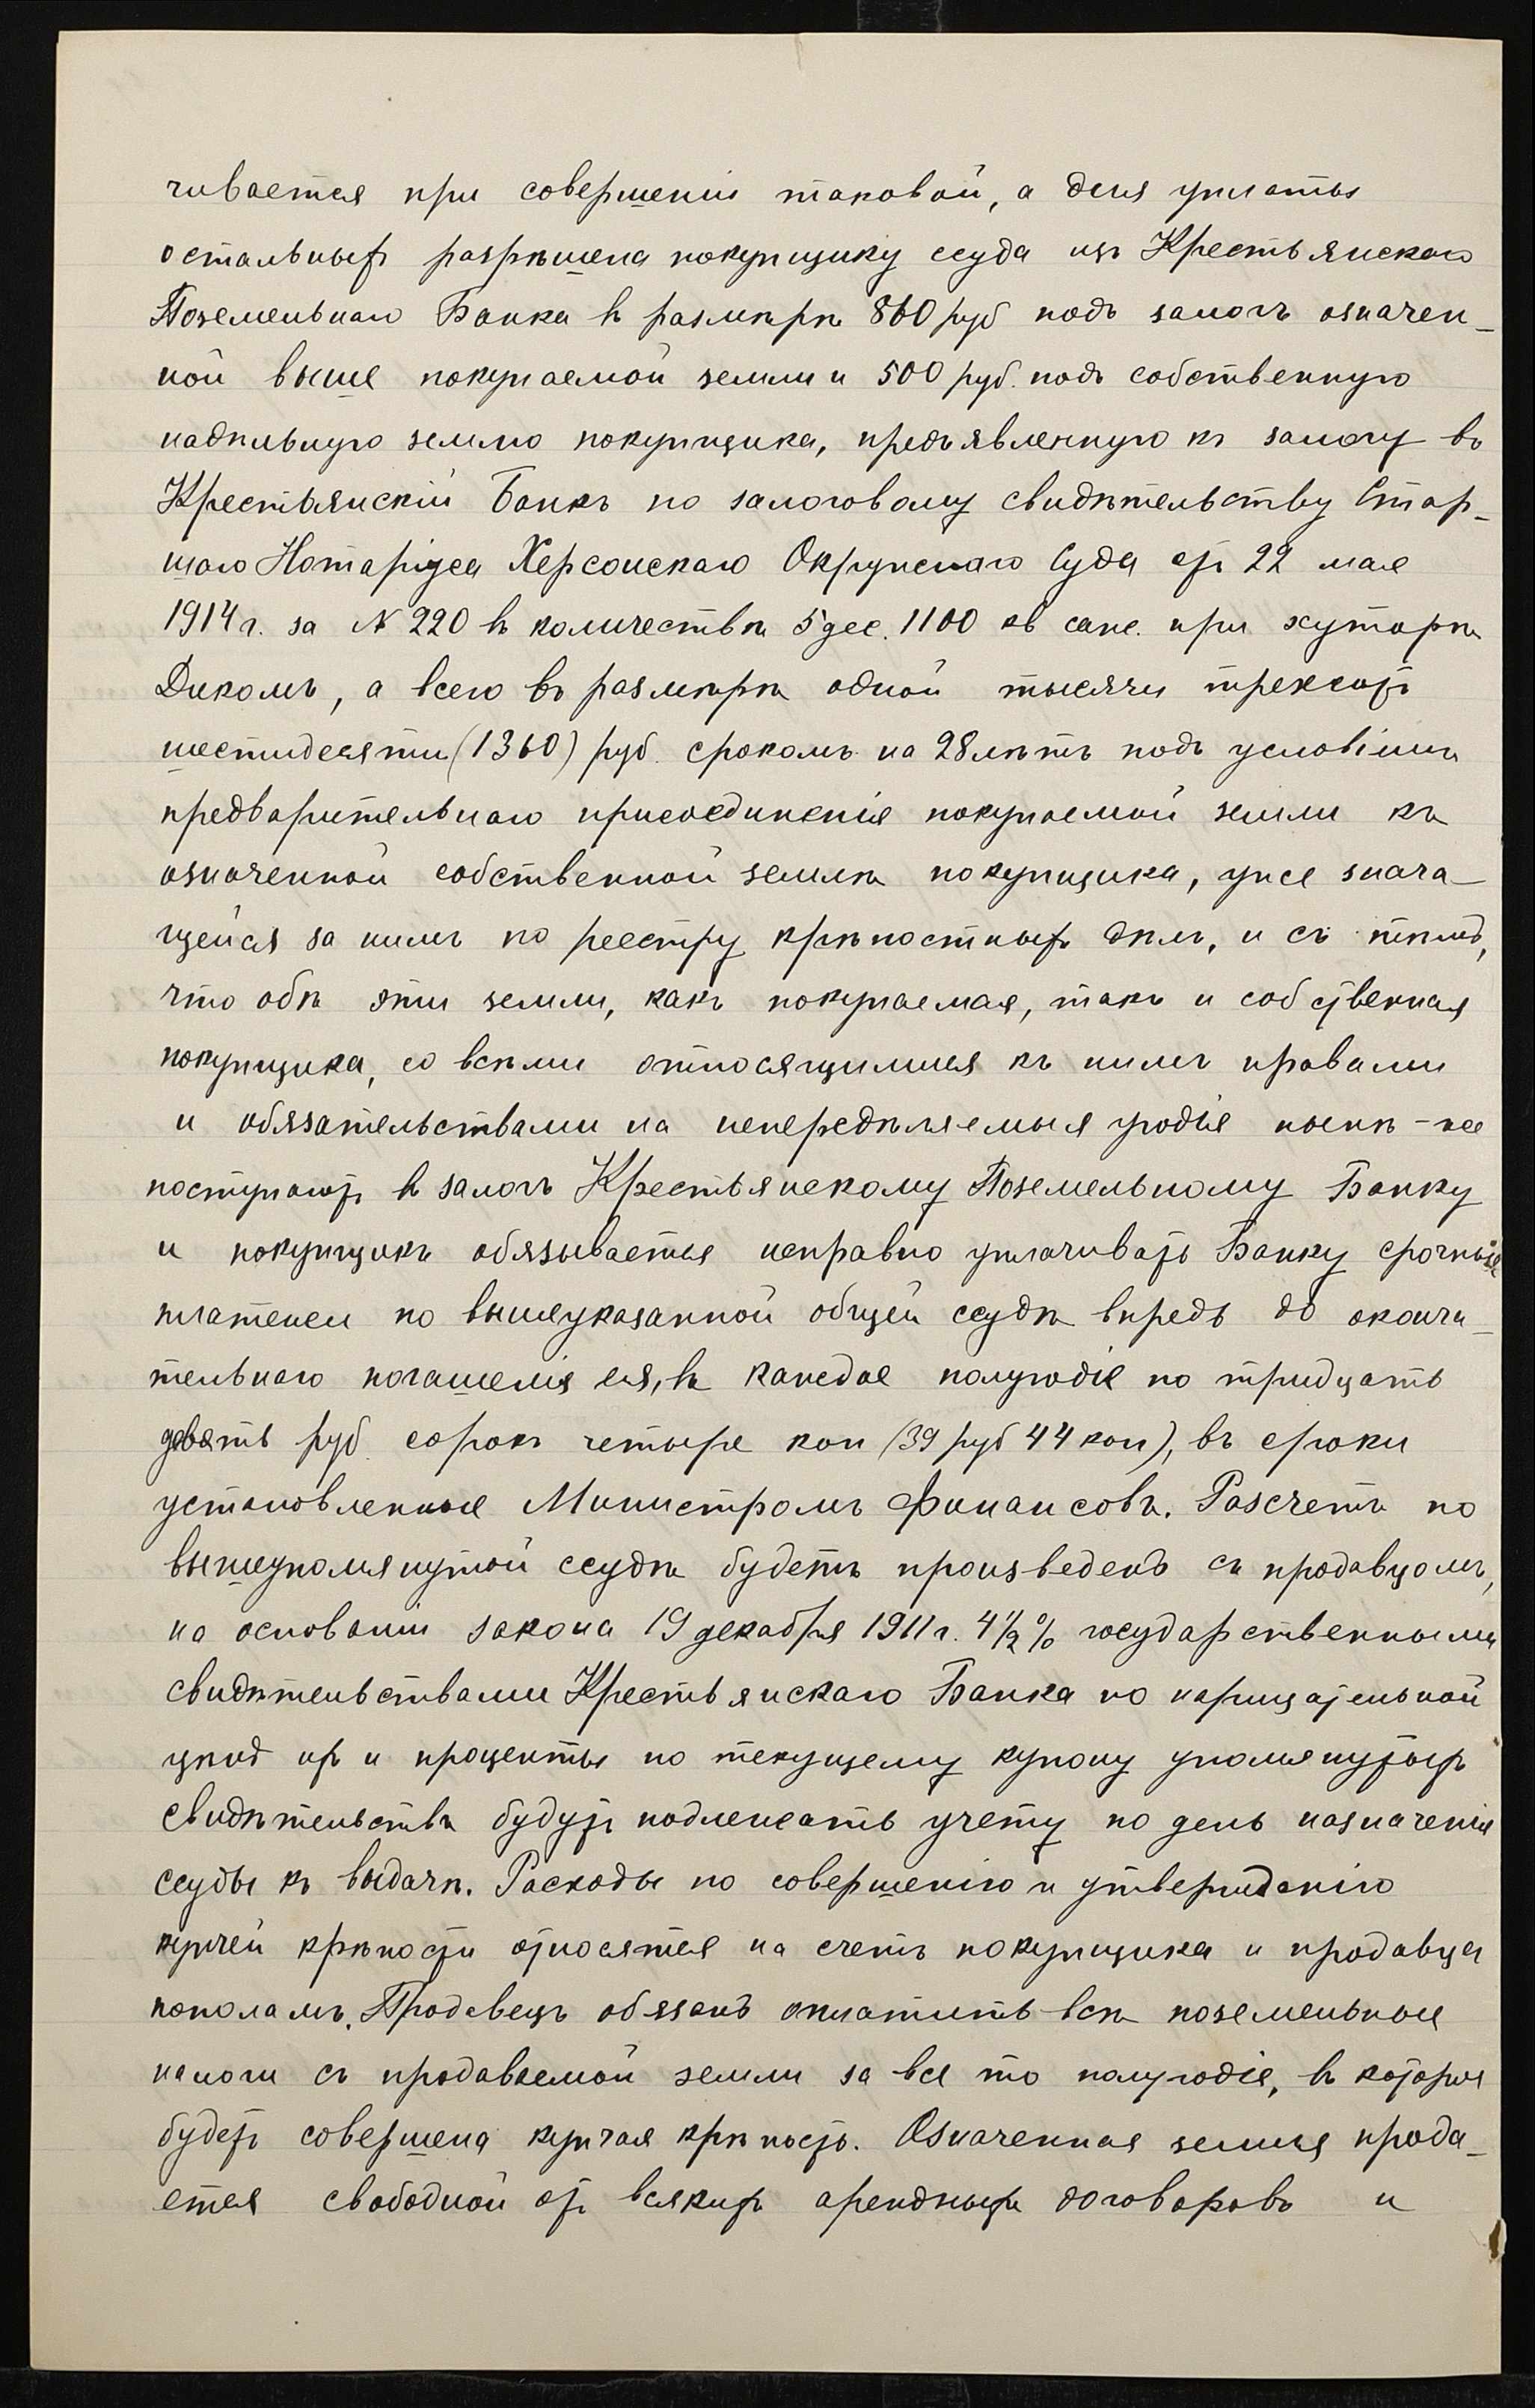 чивается при совершеніи таковой, а для уплаты
остальныхъ разрѣшена покупщику ссуда изъ Крестьянскаго
Поземельнаго Банка въ размѣрѣ 860 руб подъ залогъ означен-
ной выше покупаемой земли и 500 руб. подъ собственную
надѣльную землю покупщика, предъявленную къ залогу въ
Крестьянскій Банкъ по залоговому свидѣтельству Стар-
шаго Нотаріуса Херсонскаго Окружнаго Суда отъ 22 мая
1914 г. за № 220 въ количествѣ 5 дес. 1100 кв саж. при хуторѣ
Дикомъ, а всего въ размѣрѣ одной тысячи трехсотъ
шестидесяти (1360) руб. срокомъ на 28 лѣтъ подъ условіемъ
предварительнаго присоединенія покупаемой земли къ
означенной собственной землѣ покупщика, уже знача-
щейся за нимъ по реестру крѣпостныхъ дѣлъ, и съ тѣмъ,
что обѣ эти земли, какъ покупаемая, такъ и собственная
покупщика, со всѣми относящимися къ нимъ правами
и обязательствами на непередѣляемыя угодія нынѣ-же
поступаютъ въ залогъ Крестьянскому Поземельному Банку
и покупщикъ обязывается исправно уплачивать Банку срочные
платежи по вышеуказанной общей ссудѣ впредь до оконча-
тельнаго погашенія ея, въ каждое полугодіе по тридцать
девять руб. сорокъ четыре коп (39 руб 44 коп), въ сроки
установленные Министромъ Финансовъ. Разсчетъ по
вышеупомянутой ссудѣ будетъ произведенъ съ продавцомъ,
на основаніи закона 19 декабря 1911 г. 4½% государственными
свидѣтельствами Крестьянскаго Банка по нарицательной
цѣнѣ ихъ и проценты по текущему купону упомянутыхъ
свидѣтельствъ будутъ подлежать учету по день назначенія
ссуды къ выдачѣ. Расходы по совершенію и утвержденію
купчей крѣпости относятся на счетъ покупщика и продавца
пополамъ. Продавецъ обязанъ оплатить всѣ поземельные
налоги съ продаваемой земли за все то полугодіе, въ которое
будетъ совершена купчая крѣпость. Означенная земля прода-
ется свободной отъ всякихъ арендныхъ договоровъ и